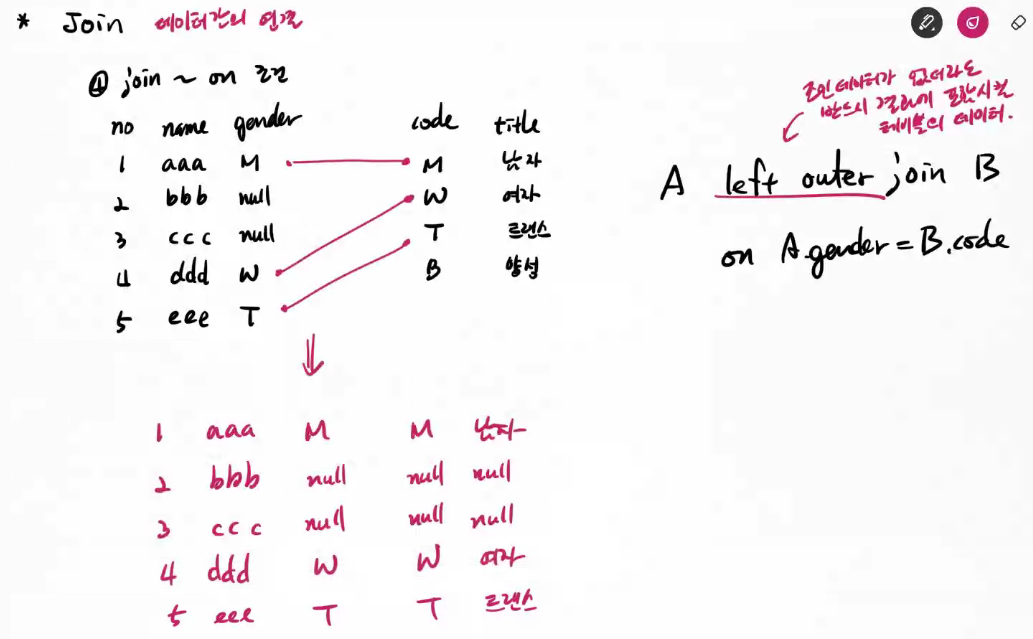 * Join 데이터간의 연결
④ join ~ on 조건
no name gender code title
1 aaa M M 남자
2 bbb null W 여자
3 ccc null T 트랜스
4 ddd W B 양성
5 eee T
조인 데이터가 없더라도
반드시 결과에 포함시킬
테이블의 데이터.
A left outer join B
on A.gender = B.code
1 aaa M M 남자
2 bbb null null null
3 ccc null null null
4 ddd W W 여자
5 eee T T 트랜스